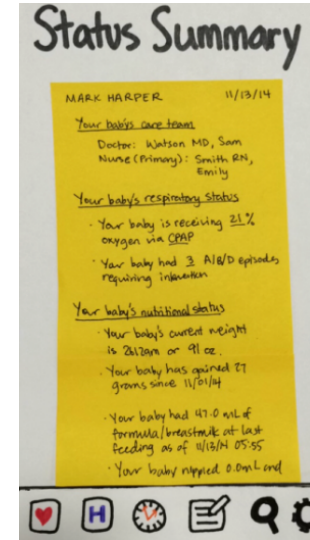 Status Summary
MARK HARPER 11/13/14
Your baby's care team
Doctor: Watson MD, Sam
Nurse (Primary): Smith RN,
Emily
Your baby's respiratory status
· Your baby is receiving 21%
oxygen via CPAP
· Your baby had 3 A/B/D episodes
requiring intervention
Your baby's nutritional status
· Your baby's current weight
is gm or 91 oz.
· Your baby has gained 27
grams since 11/01/14
· Your baby had 47.0 mL of
formula/breastmilk at last
feeding as of 11/13/14 05:55
· Your baby nippled 0.0mL and
H